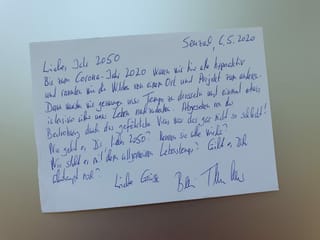 Seuzach, 6.5.2020
Liebes Jahr 2050
Bis zum Corona-Jahr 2020 waren wir für alle hyperaktiv
und rannten wie die Wilden von einem Ort und Projekt zum anderen.
Dann wurden wir gezwungen unser Tempo zu drosseln und einmal etwas
intensiver über unser Leben nachzudenken. Abgesehen von der
Bedrohung durch das gefährliche Virus war das gar nicht so schlecht!
Wie geht es Dir, Jahr 2050? alle
Wie steht es mit dem allgemeinen Lebenstempo? Gibt es Dich
überhaupt noch?
Liebe Grüsse